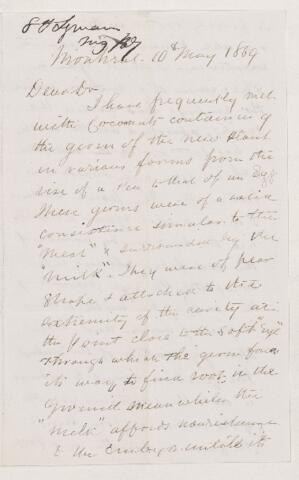 S H Lyman
Montreal 10th May 1869
Dear Dr.
I have frequently met
with Cocoanuts containing
the germ of the new plant
in various forms from the
size of a Pea to that of an Egg
These germs were of a solid
consistence similar to the
"Meat" & surrounded by the
"Milk". They were of pear
Shape & attached to the
extremity of the cavity at
the point close to the Soft "Eye"
through which the germ finds
its way to find root in the
Ground meanwhile the
"Milk" affords nourishment
to the Embryo until its